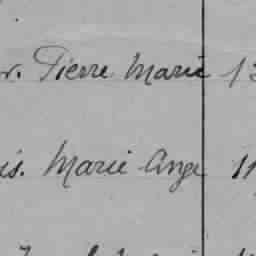 r. Pierre Marie 13
is. Marie Ange 11